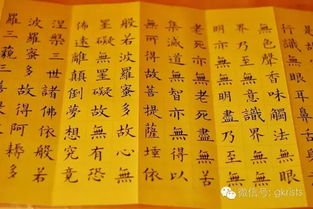 行識無眼耳
無色聲香味觸法無眼
界乃至無意識界無無
明亦無無明盡乃至無
老死亦無老死盡無苦
集滅道無智亦無得以
無所得故菩提薩埵依
般若波羅蜜多故心無
罣礙無罣礙故無有恐
怖遠離顛倒夢想究竟
涅槃三世諸佛依般若
波羅蜜多故得阿耨多
羅三藐三菩
微信号: gkrists